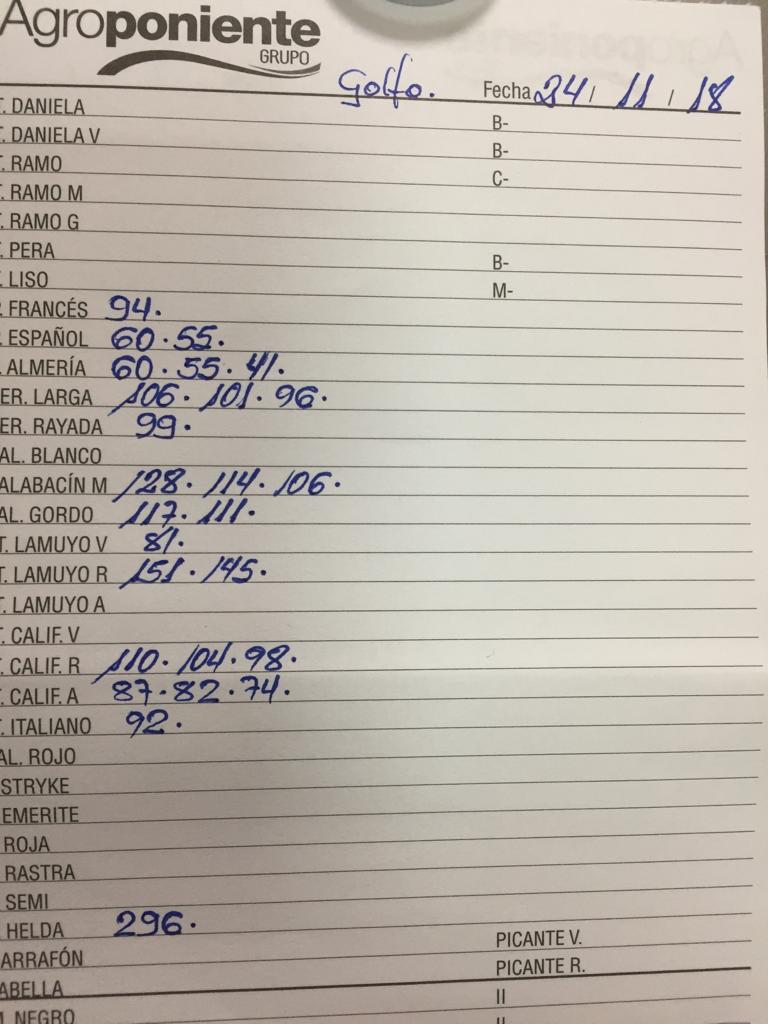 Agroponiente
GRUPO
Golfo. Fecha 24 / 11 / 18
T. DANIELA B-
T. DANIELA V B-
T. RAMO C-
T. RAMO M
T. RAMO G
T. PERA B-
T. LISO M-
P. FRANCÉS 94.
P. ESPAÑOL 60. 55.
. ALMERÍA 60. 55. 41.
ER. LARGA 106. 101. 96.
ER. RAYADA 99.
AL. BLANCO
ALABACÍN M 128. 114. 106.
AL. GORDO 117. 111.
T. LAMUYO V 81.
T. LAMUYO R 151. 145.
T. LAMUYO A
T. CALIF. V
T. CALIF. R 110. 104. 98.
T. CALIF. A 87. 82. 74.
T. ITALIANO 92.
AL. ROJO
STRYKE
EMERITE
ROJA
RASTRA
SEMI
HELDA 296.
ARRAFÓN PICANTE V.
ABELLA PICANTE R.
. NEGRO II
II